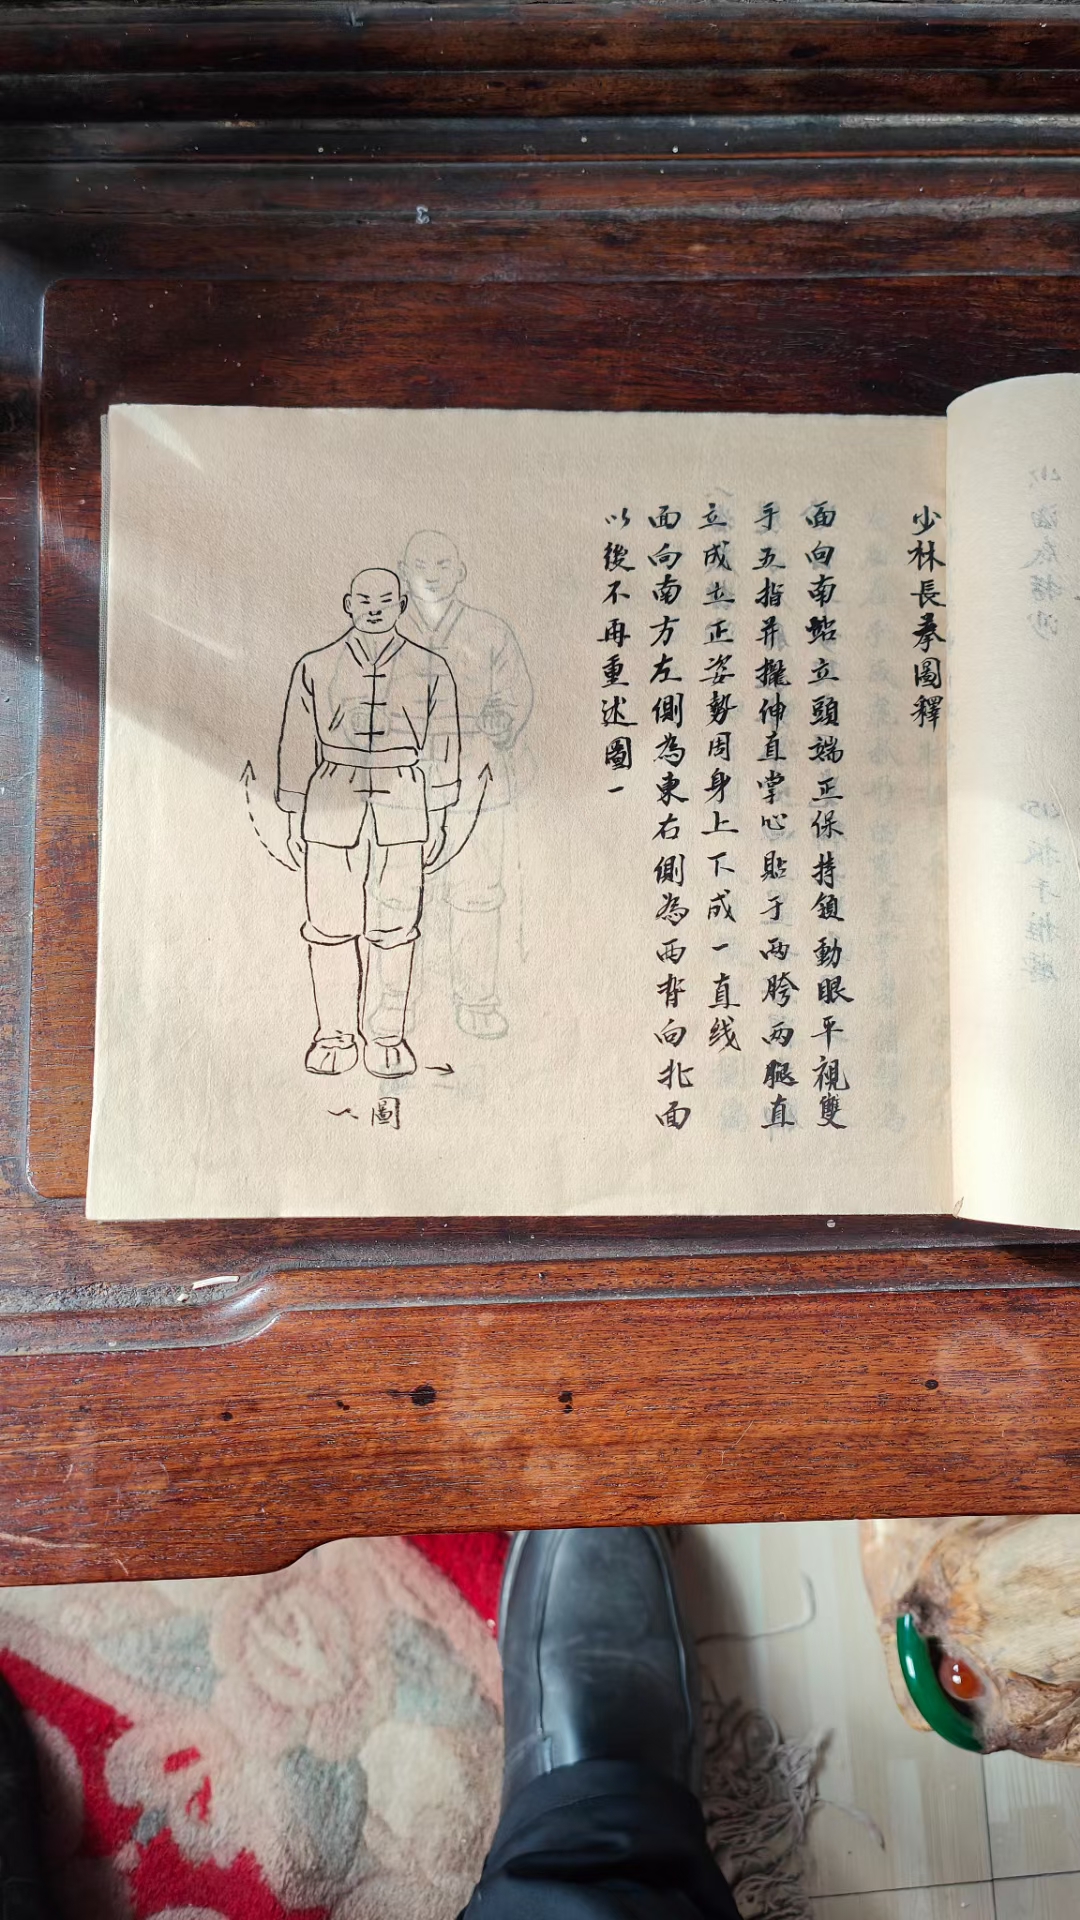 少林長拳圖釋
面向南站立頭端正保持領動眼平視雙
手五指并攏伸直掌心貼于两胯两腿直
立成立正姿勢周身上下成一直线
面向南方左側為東右側為西背向北面
以後不再重述圖一
圖一